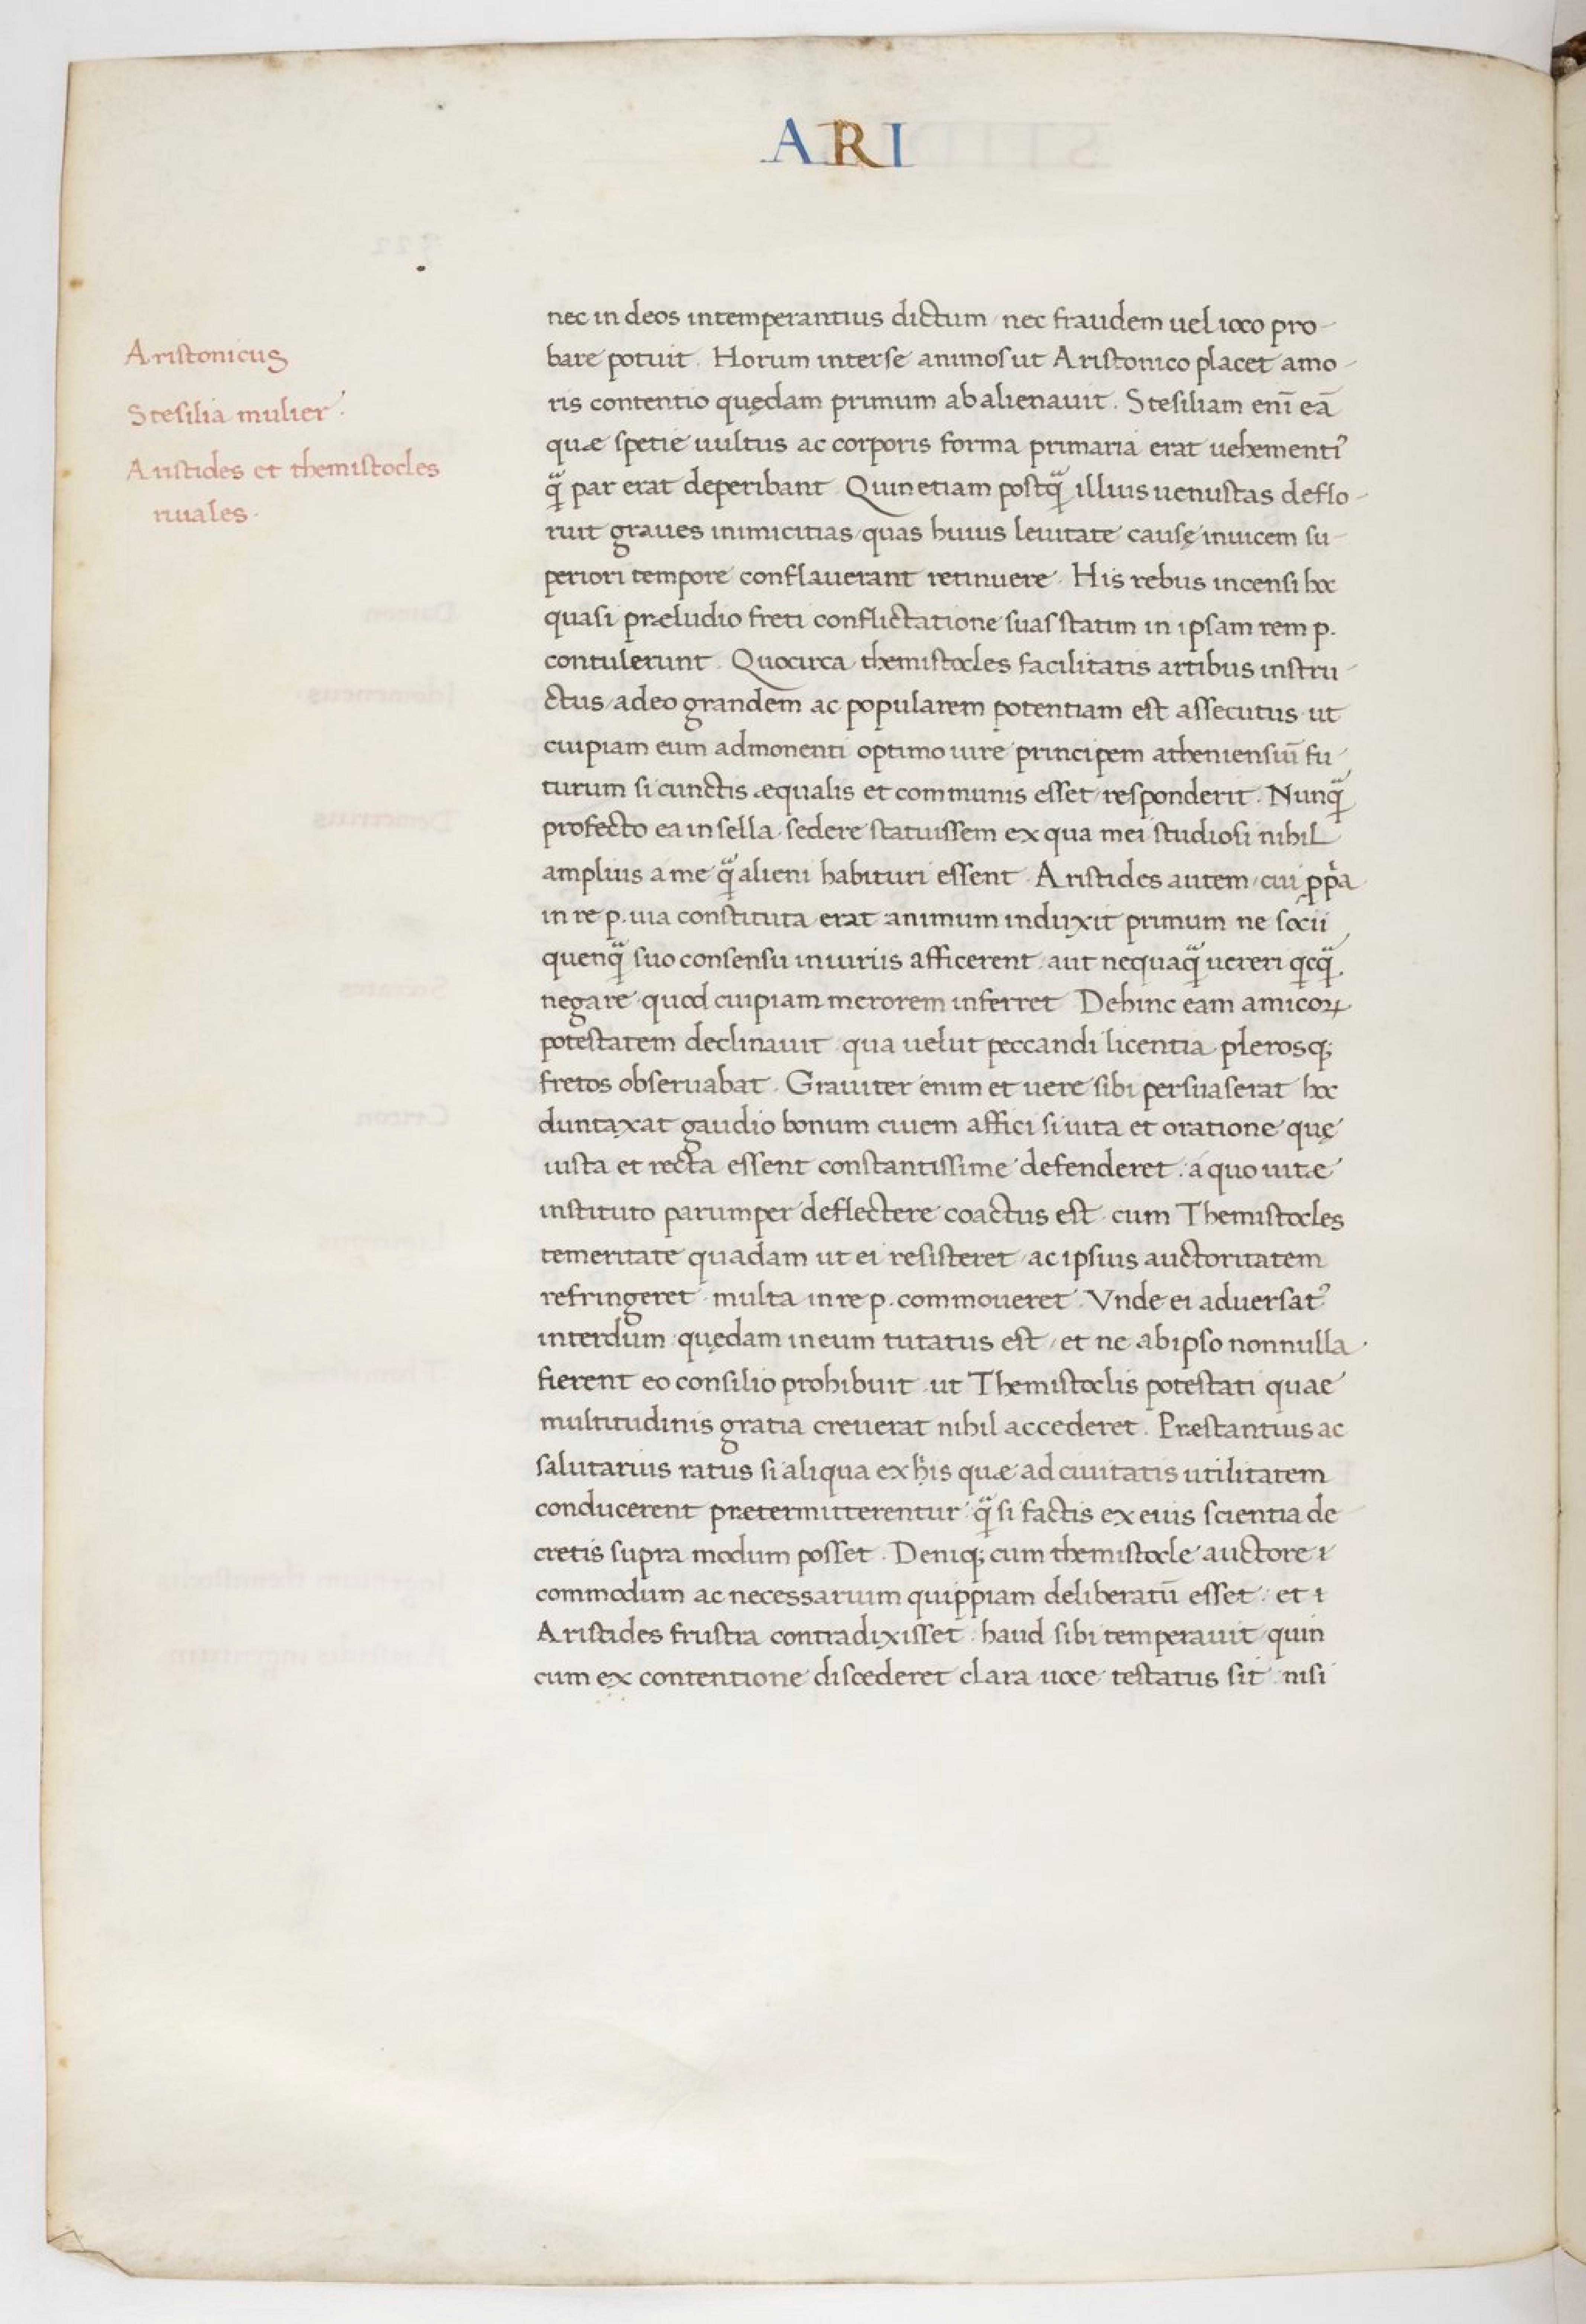 ARI
Aristonicus
Stesilia mulier.
Aristides et themistocles
riuales.
nec in deos intemperantius dictum / nec fraudem uel ioco pro-
bare potuit. Horum inter se animos ut Aristonico placet amo-
ris contentio quędam primum abalienauit. Stesiliam enī eā
quæ spetie uultus ac corporis forma primaria erat uehementiꝰ
q̄ par erat deperibant. Quin etiam postq̄ illius uenustas deflo-
ruit graues inimicitias / quas huius leuitate causę inuicem su-
periori tempore conflauerant retinuere. His rebus incensi hoc
quasi præludio freti conflictatione suas statim in ipsam rem p.
contulerunt. Quocirca themistocles facilitatis artibus instru-
ctus / adeo grandem ac popularem potentiam est assecutus ut
cuipiam eum admonenti optimo iure principem atheniensiū fu-
turum si cunctis æqualis et communis esset / responderit. Nunq̄
profecto ea in sella sedere statuissem ex qua mei studiosi nihil
amplius a me q̄ alieni habituri essent. Aristides autem / cui ꝓpͥa
in re p. uia constituta erat animum induxit primum ne socii
quenq̄ suo consensu iniuriis afficerent aut nequaq̄ uereri qcq̄
negare quod cuipiam merorem inferret. Dehinc eam amicoꝝ
potestatem declinauit qua uelut peccandi licentia plerosq;
fretos obseruabat. Grauiter enim et uere sibi persuaserat hoc
duntaxat gaudio bonum ciuem affici si uita et oratione quę
iusta et recta essent constantissime defenderet. a quo uitæ
instituto parumper deflectere coactus est cum Themistocles
temeritate quadam ut ei resisteret / ac ipsius auctoritatem
refringeret multa in re p. commoueret. Vnde ei aduersatꝰ
interdum quędam in eum tutatus est / et ne ab ipso nonnulla
fierent eo consilio prohibuit ut Themistoclis potestati quae
multitudinis gratia creuerat nihil accederet. Præstantius ac
salutarius ratus si aliqua ex his quæ ad ciuitatis utilitatem
conducerent prætermitterentur q̄ si factis ex eius scientia de-
cretis supra modum posset. Deniq; cum themistocle auctore
commodum ac necessarium quippiam deliberatū esset: et
Aristides frustra contradixisset haud sibi temperauit quin
cum ex contentione discederet clara uoce testatus sit nisi